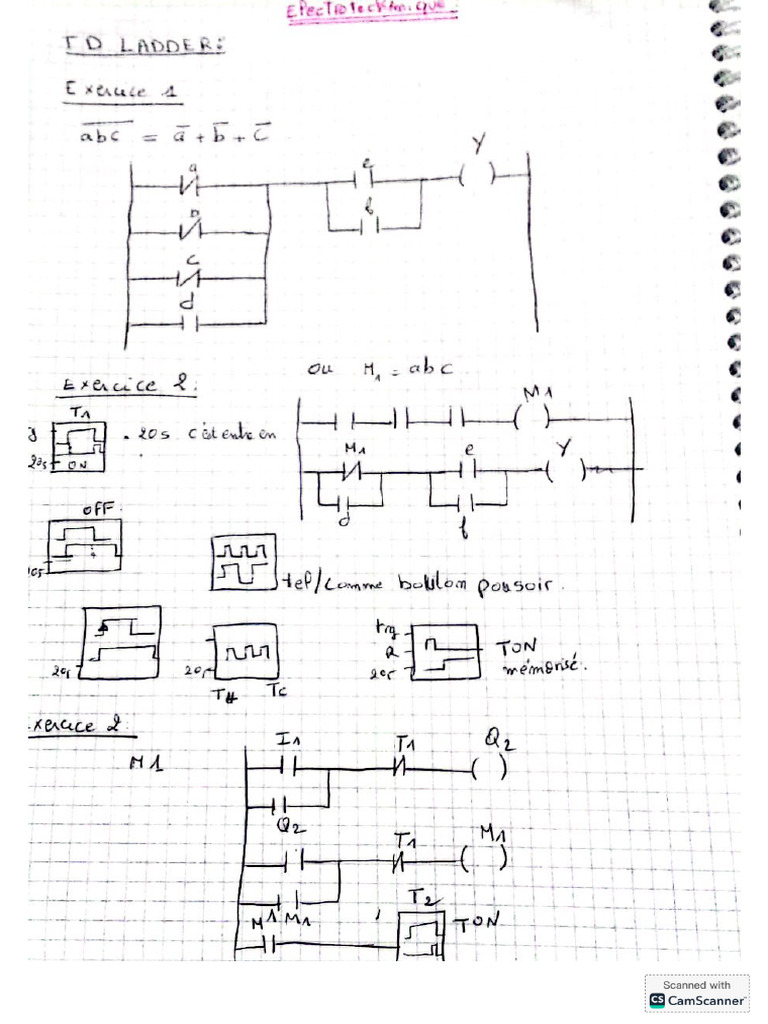 Electrotechnique:
TD LADDER:
Exercice 1
abc = a + b + c
a
e
Y
b
f
c
d
ou M1 = abc
Exercice 2:
T1
20s
ON
M1
M1
e
Y
d
f
OFF
tel/comme bouton poussoir.
20s
20s
TH
Tc
trg
R
20s
TON
mémorisé.
xercice 2:
M1
I1
T1
Q2
Q2
T1
M1
M1
M1
T2
TON
Scanned with
CS CamScanner